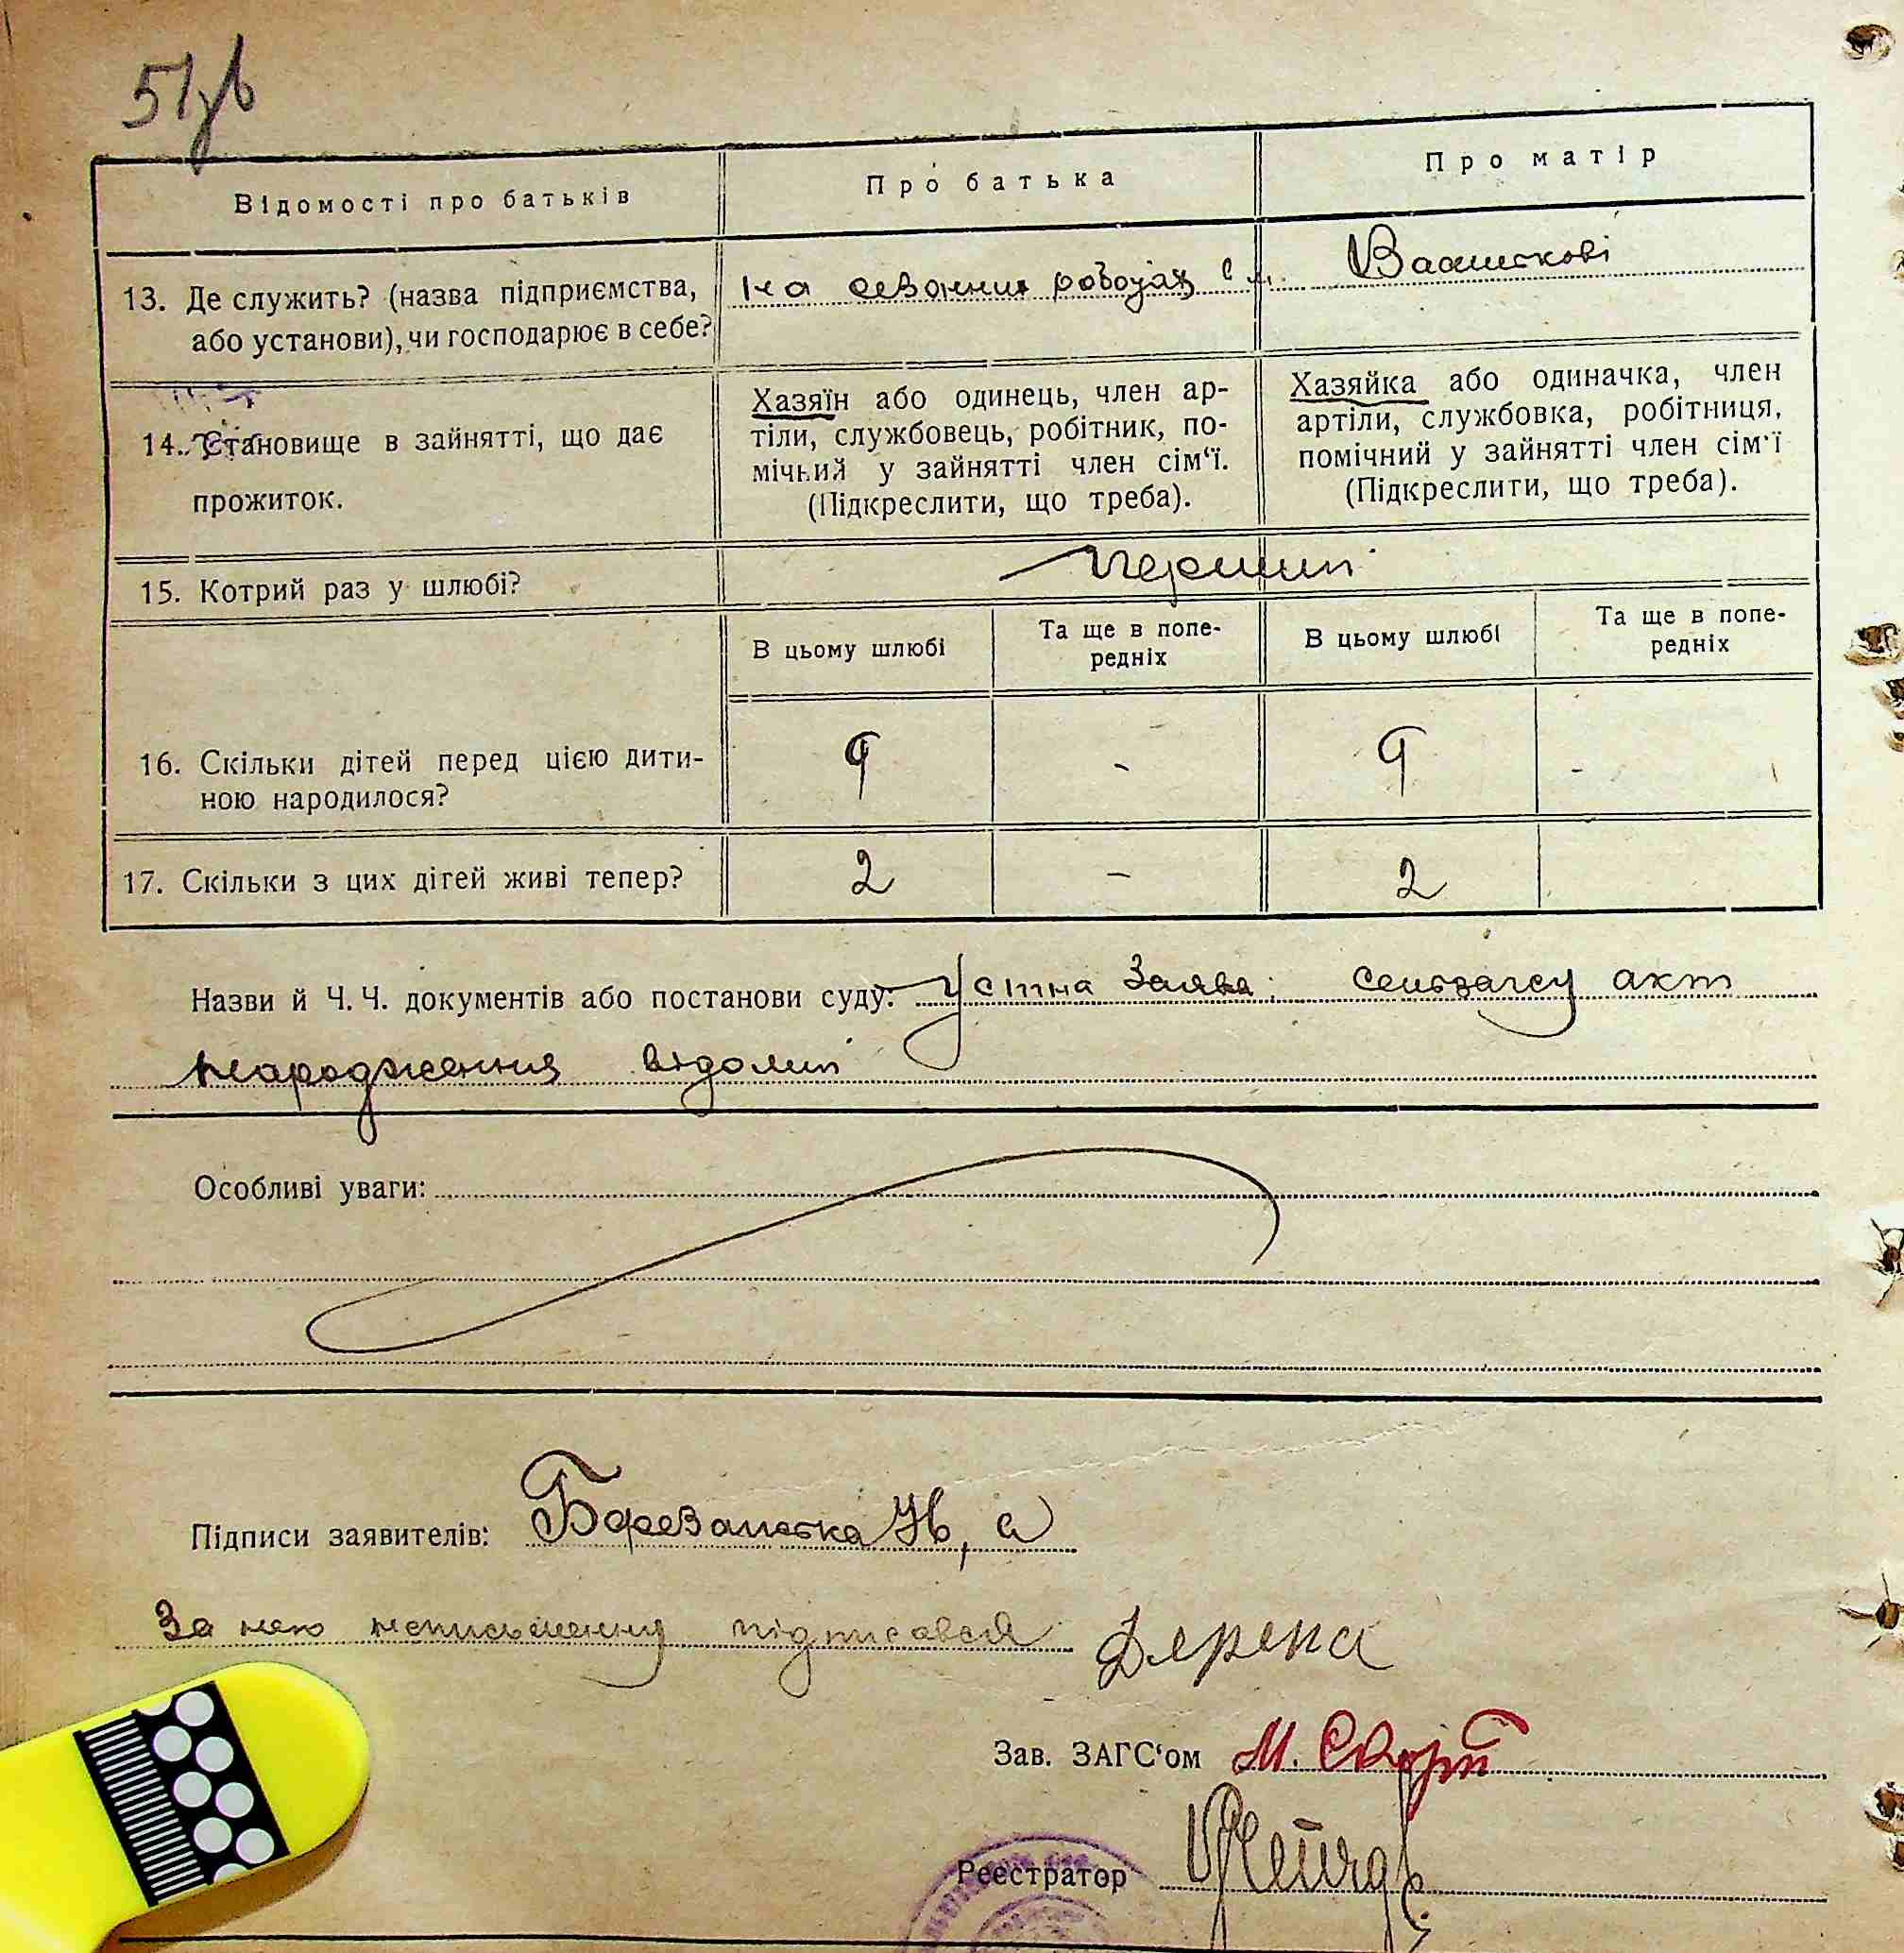 51зв
Відомості про батьків
Про батька
Про матір
13. Де служить? (назва підприємства,
або установи), чи господарює в себе?
на сезонних роботах в м.
14. Становище в зайнятті, що дає
прожиток.
Хазяїн або одинець, член ар-
тіли, службовець, робітник, по-
мічний у зайнятті член сім‘ї.
(Підкреслити, що треба).
Хазяйка або одиначка, член
артіли, службовка, робітниця,
помічний у зайнятті член сім‘ї
(Підкреслити, що треба).
15. Котрий раз у шлюбі?
перший
В цьому шлюбі
Та ще в попе-
редніх
В цьому шлюбі
Та ще в попе-
редніх
16. Скільки дітей перед цією дити-
ною народилося?
9 - 9 -
17. Скільки з цих дітей живі тепер?
2 - 2
Назви й Ч. Ч. документів або постанови суду: Устна заява. сельзагсу акт
народження відомий
Особливі уваги:
Підписи заявителів:
За нею неписьменну підписався
Зав. ЗАГС‘ом М.
Реєстратор